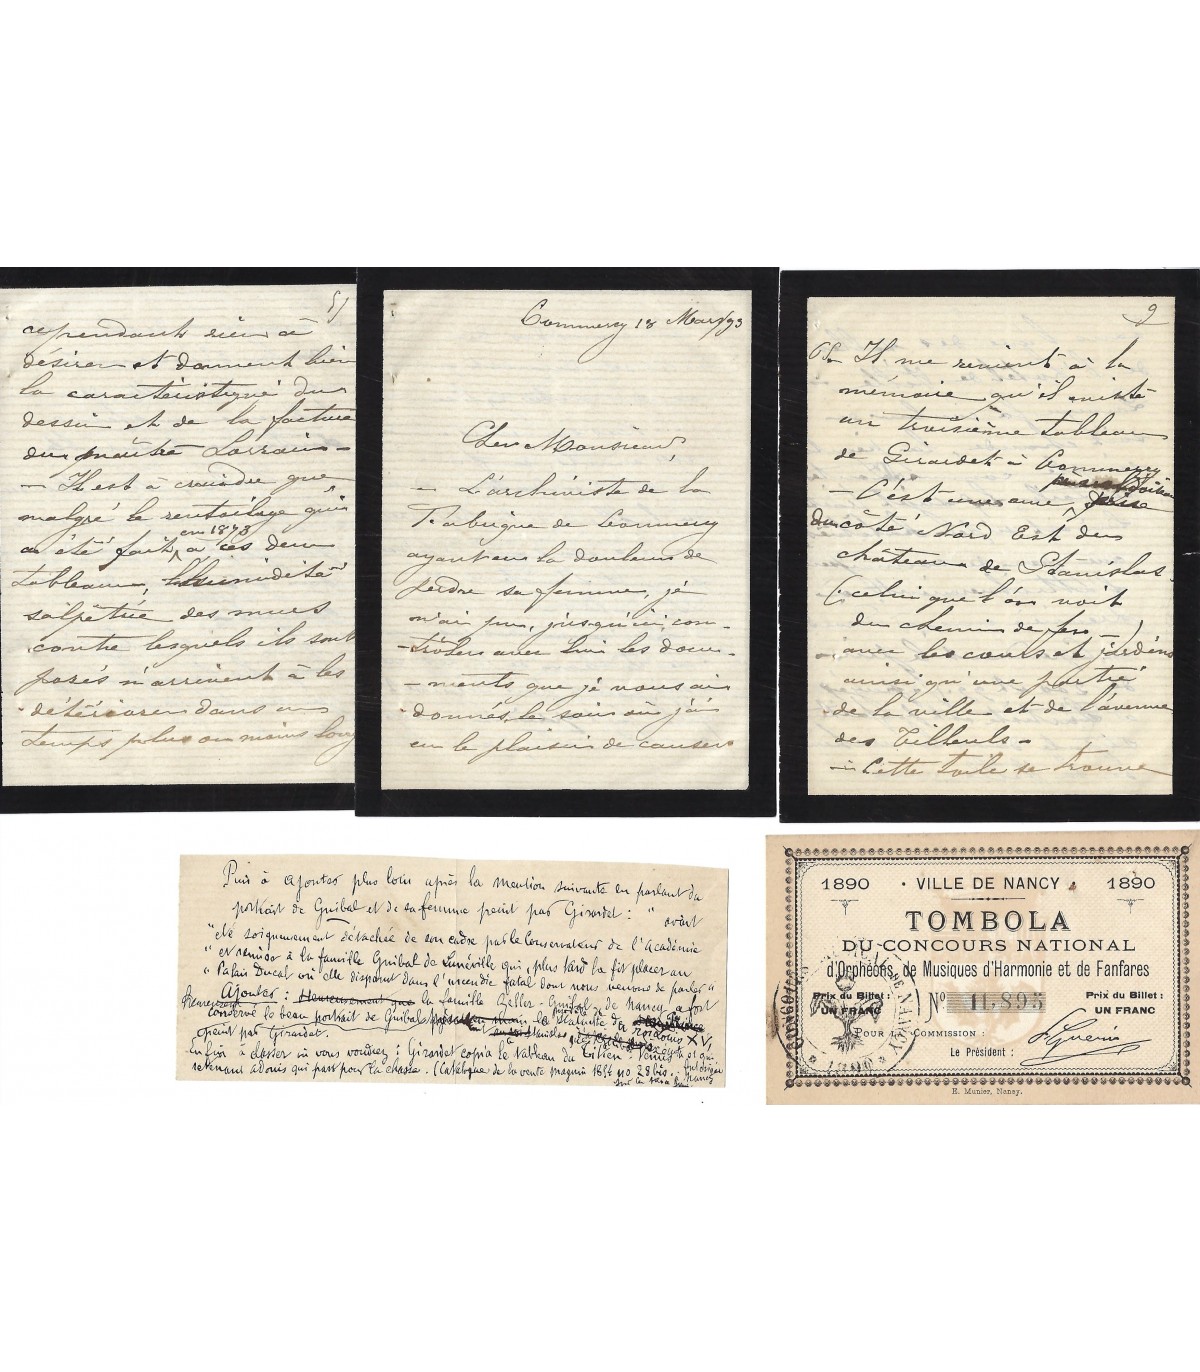 5)
cependant rien à
désirer et donnent bien
la caractéristique du
dessin et de la facture
du maître Lorrain -
- Il est à craindre que
malgré le rentoilage qui
en 1873
a été fait à ces deux
tableaux, l'humidité
salpêtrée des murs
contre lesquels ils sont
posés n'arrivent à les
détériorer dans un
temps plus ou moins long
Commercy 18 Mars/93
Cher Monsieur,
- L'archiviste de la
Fabrique de Commercy
ayant eu la douleur de
perdre sa femme, je
n'ai pu, jusqu'ici, con-
-trôler avec lui les docu-
-ments que je vous ai
donnés, le soir où j'ai
eu le plaisir de causer
9
Il me revient à la
mémoire qu'il existe
un troisième tableau
de Girardet à Commercy
- C'est une vue prise
du côté Nord Est du
château de Stanislas
(celui que l'on voit
du chemin de fer -)
- avec les cours et jardins
ainsi qu'une partie
de la ville et de l'avenue
des Tilleuls -
- Cette toile se trouve
Puis à ajouter plus loin après la mention suivante en parlant du
portrait de Guibal et de sa femme peint par Girardet : " avait
"été soigneusement détachée de son cadre par le Conservateur de l'Académie
" et remise à la famille Guibal de Lunéville qui, plus tard la fit placer au
" Palais Ducal où elle disparut dans l'incendie fatal dont nous venons de parler "
Ajouter : Heureusement que la famille Geller-Guibal de Nancy a fort
conservé le beau portrait de Guibal la statuette de Louis XV,
peint par Girardet.
Enfin à classer où vous voudrez : Girardet copia le tableau du Titien : Vénus
retenant adonis qui part pour la chasse. (Catalogue de la vente 1854 no 28 bis.
1890 · VILLE DE NANCY · 1890
TOMBOLA
DU CONCOURS NATIONAL
d'Orphéons, de Musiques d'Harmonie et de Fanfares
Prix du Billet : UN FRANC
No 11,895
Prix du Billet : UN FRANC
POUR LA COMMISSION :
Le Président :
E. Munier, Nancy.